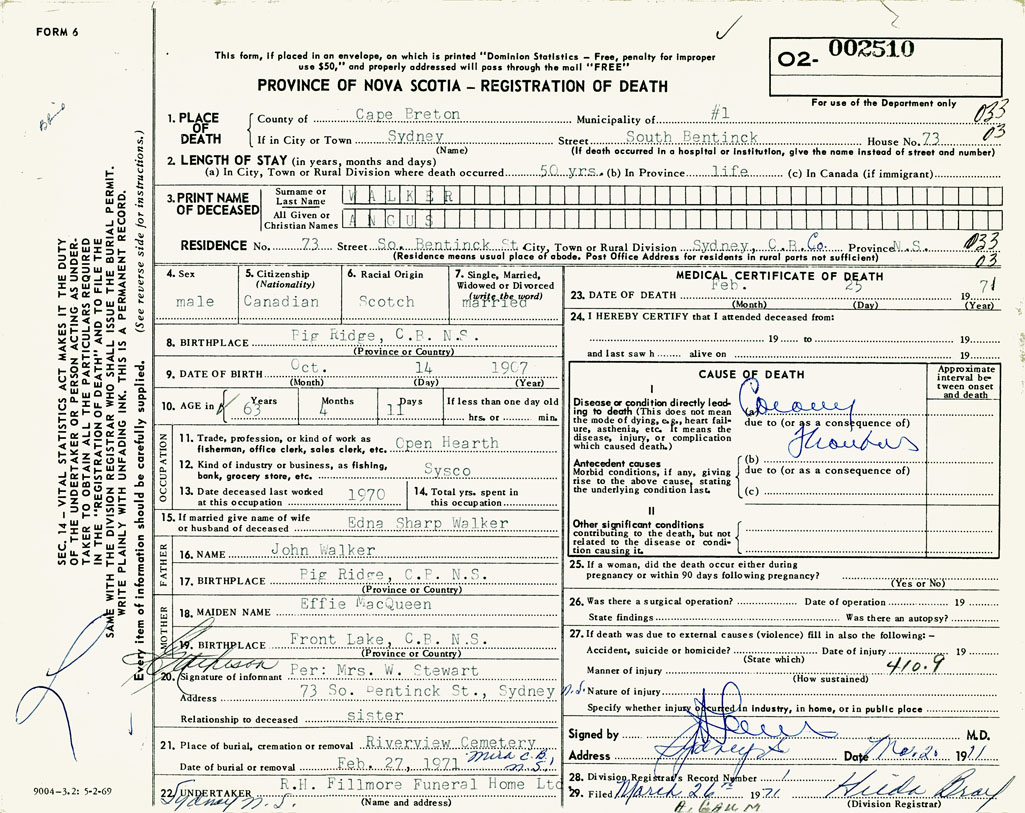 FORM 6
This form, if placed in an envelope, on which is printed "Dominion Statistics – Free, penalty for improper
use $50," and properly addressed will pass through the mail "FREE"
PROVINCE OF NOVA SCOTIA – REGISTRATION OF DEATH
O2- 002510
For use of the Department only
1. PLACE OF DEATH
County of Cape Breton Municipality of #1 033
If in City or Town Sydney Street South Bentinck House No. 73 03
(Name) (If death occurred in a hospital or institution, give the name instead of street and number)
2. LENGTH OF STAY (in years, months and days)
(a) In City, Town or Rural Division where death occurred 50 yrs. (b) In Province life (c) In Canada (if immigrant)
3. PRINT NAME OF DECEASED
Surname or Last Name WALKER
All Given or Christian Names ANGUS
RESIDENCE No. 73 Street So. Bentinck St City, Town or Rural Division Sydney, C.B. Co. Province N.S. 033
(Residence means usual place of abode. Post Office Address for residents in rural parts not sufficient) 03
4. Sex
male
5. Citizenship
(Nationality)
Canadian
6. Racial Origin
Scotch
7. Single, Married,
Widowed or Divorced
(write the word)
married
8. BIRTHPLACE Big Ridge, C.B. N.S.
(Province or Country)
9. DATE OF BIRTH Oct. 14 1907
(Month) (Day) (Year)
10. AGE in Years 63 Months 4 Days 11 If less than one day old
hrs. or min.
OCCUPATION
11. Trade, profession, or kind of work as
fisherman, office clerk, sales clerk, etc. Open Hearth
12. Kind of industry or business, as fishing,
bank, grocery store, etc. Sysco
13. Date deceased last worked
at this occupation 1970
14. Total yrs. spent in
this occupation
15. If married give name of wife
or husband of deceased Edna Sharp Walker
FATHER
16. NAME John Walker
17. BIRTHPLACE Big Ridge, C.B. N.S.
(Province or Country)
MOTHER
18. MAIDEN NAME Effie MacQueen
19. BIRTHPLACE Front Lake, C.B. N.S.
(Province or Country)
20. Signature of informant Per: Mrs. W. Stewart
Address 73 So. Bentinck St., Sydney N.S.
Relationship to deceased sister
21. Place of burial, cremation or removal Riverview Cemetery
Mira C.B.
Date of burial or removal Feb. 27, 1971 N.S.
22. UNDERTAKER R.H. Fillmore Funeral Home Ltd
Sydney N.S. (Name and address)
MEDICAL CERTIFICATE OF DEATH
23. DATE OF DEATH Feb. 25 1971
(Month) (Day) (Year)
24. I HEREBY CERTIFY that I attended deceased from:
19 to 19
and last saw h alive on 19
CAUSE OF DEATH
Approximate
interval be-
tween onset
and death
I
Disease or condition directly lead-
ing to death (This does not mean
the mode of dying, e.g., heart fail-
ure, asthenia, etc. It means the
disease, injury, or complication
which caused death.)
(a) Coronary
due to (or as a consequence of)
Thrombus
Antecedent causes
Morbid conditions, if any, giving
rise to the above cause, stating
the underlying condition last.
(b)
due to (or as a consequence of)
(c)
II
Other significant conditions
contributing to the death, but not
related to the disease or condi-
tion causing it.
25. If a woman, did the death occur either during
pregnancy or within 90 days following pregnancy?
(Yes or No)
26. Was there a surgical operation? Date of operation 19
State findings Was there an autopsy?
27. If death was due to external causes (violence) fill in also the following: –
Accident, suicide or homicide? Date of injury 19
(State which) 410.9
Manner of injury
(How sustained)
Nature of injury
Specify whether injury occurred in industry, in home, or in public place
Signed by M.D.
Address Sydney Date 1971
28. Division Registrar's Record Number 1
29. Filed March 26th 1971 Hilda Bray
(Division Registrar)
SEC. 14 – VITAL STATISTICS ACT MAKES IT THE DUTY
OF THE UNDERTAKER OR PERSON ACTING AS UNDER-
TAKER TO OBTAIN ALL THE PARTICULARS REQUIRED
IN THE "REGISTRATION OF DEATH" AND TO FILE THE
SAME WITH THE DIVISION REGISTRAR WHO SHALL ISSUE THE BURIAL PERMIT.
WRITE PLAINLY WITH UNFADING INK. THIS IS A PERMANENT RECORD.
Every item of information should be carefully supplied. (See reverse side for instructions.)
9004-3.2: 5-2-69